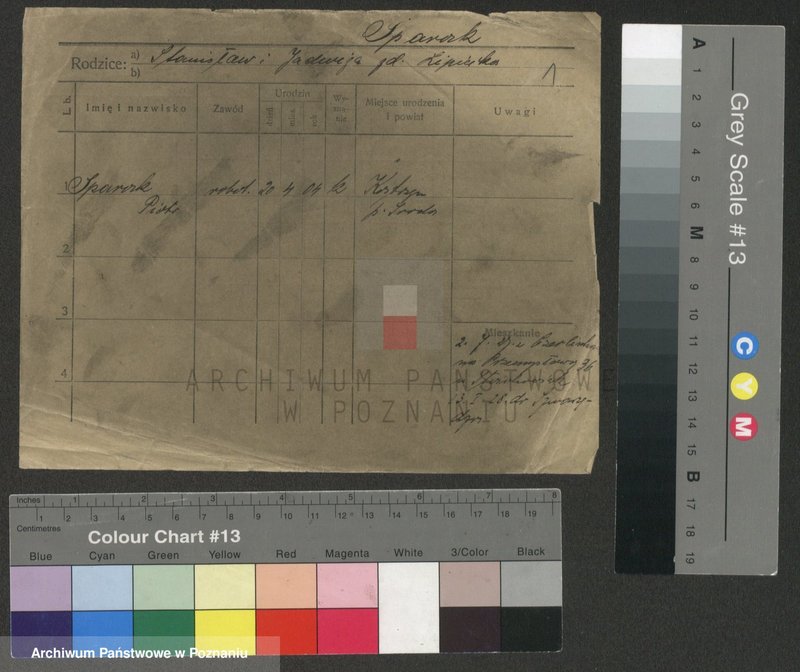 Sparak
Rodzice: a) Stanisław i Jadwiga zd. Lipińska
b)
1
L.b. Imię i nazwisko Zawód Urodzin dzień mies. rok Wyznanie Miejsce urodzenia i powiat Uwagi
1 Sparak robot. 20 4 04 k
Piotr p. Środa
2
3
Mieszkanie
4
ARCHIWUM PAŃSTWOWE
W POZNANIU
Inches 1 2 3 4 5 6 7 8
Centimetres 1 2 3 4 5 6 7 8 9 10 11 12 13 14 15 16 17 18 19
Colour Chart #13
Blue Cyan Green Yellow Red Magenta White 3/Color Black
Archiwum Państwowe w Poznaniu
Grey Scale #13
A 1 2 3 4 5 6 M 8 9 10 11 12 13 14 15 B 17 18 19
C Y M